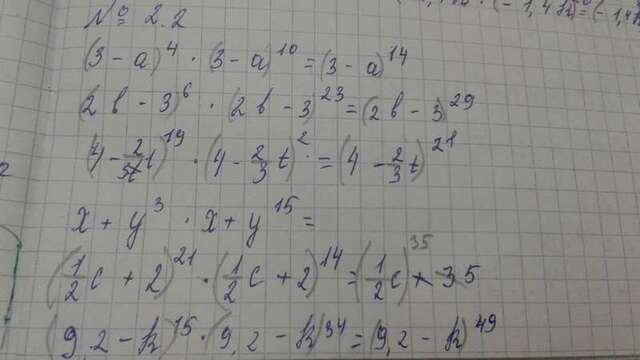 № 2.2
(3 - a)⁴ · (3 - a)¹⁰ = (3 - a)¹⁴
(2b - 3)⁶ · (2b - 3)²³ = (2b - 3)²⁹
(4 - 2/3 t)¹⁹ · (4 - 2/3 t)² = (4 - 2/3 t)²¹
x + y³ · x + y¹⁵ =
(1/2 c + 2)²¹ · (1/2 c + 2)¹⁴ = (1/2 c) + 35³⁵
(9,2 - k)¹⁵ · (9,2 - k)³⁴ = (9,2 - k)⁴⁹